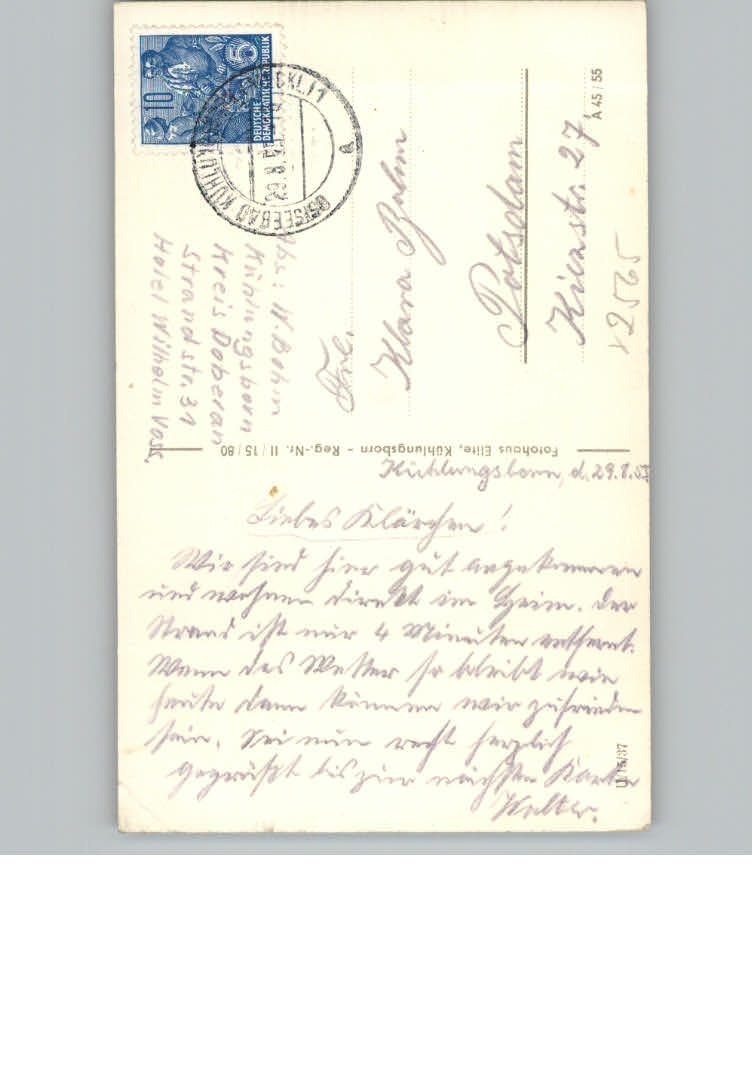 Kühlungsborn, d. 29.8.55
Liebes Klärchen!
Wir sind hier gut angekommen
und wohnen direkt im Heim. Der
Strand ist nur 4 Minuten entfernt.
Wenn das Wetter so bleibt wie
heute dann können wir zufrieden
sein. Sei nun recht herzlich
gegrüßt bis zur nächsten Karte
Walter.
Frl.
Klara Bohm
Potsdam
Kiezstr. 27
Abs: W. Bohm
Kühlungsborn
Kreis Doberan
Strandstr. 31
Hotel Wilhelm Voss.
Fotohaus Elite, Kühlungsborn - Reg.-Nr. II/15/80
A 45/55
II/15/37
2565
10
5
DEUTSCHE
DEMOKRATISCHE REPUBLIK
OSTSEEBAD
29.8.55
a